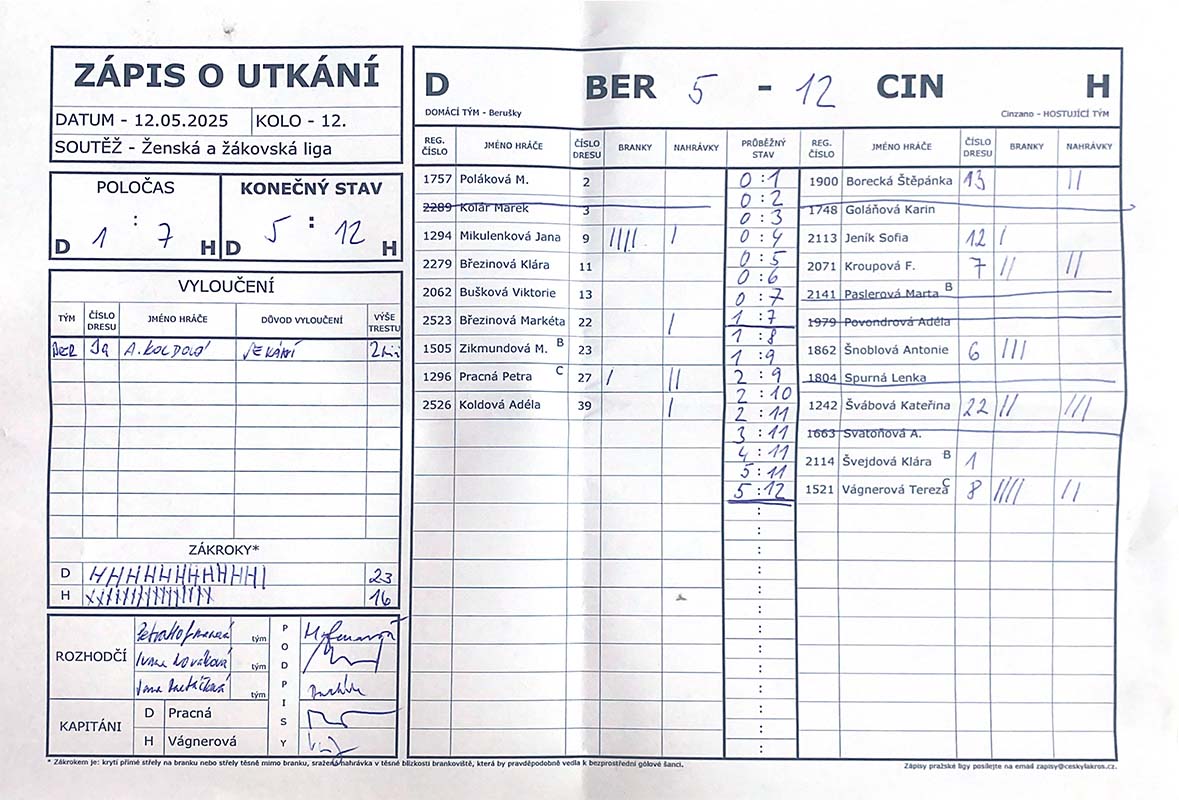 ZÁPIS O UTKÁNÍ
DATUM - 12.05.2025 KOLO - 12.
SOUTĚŽ - Ženská a žákovská liga
POLOČAS KONEČNÝ STAV
D 1 : 7 H D 5 : 12 H
VYLOUČENÍ
TÝM ČÍSLO DRESU JMÉNO HRÁČE DŮVOD VYLOUČENÍ VÝŠE TRESTU
BER 39 A. KOLDOVÁ SEKÁNÍ
ZÁKROKY*
D 23
H 16
ROZHODČÍ
tým
tým
tým
PODPISY
KAPITÁNI
D Pracná
H Vágnerová
D BER 5 - 12 CIN H
DOMÁCÍ TÝM - Berušky Cinzano - HOSTUJÍCÍ TÝM
REG. ČÍSLO JMÉNO HRÁČE ČÍSLO DRESU BRANKY NAHRÁVKY PRŮBĚŽNÝ STAV REG. ČÍSLO JMÉNO HRÁČE ČÍSLO DRESU BRANKY NAHRÁVKY
1757 Poláková M. 2
2289 Kolár Marek 3
1294 Mikulenková Jana 9 |||| |
2279 Březinová Klára 11
2062 Bušková Viktorie 13
2523 Březinová Markéta 22 |
1505 Zikmundová M. B 23
1296 Pracná Petra C 27 | ||
2526 Koldová Adéla 39 |
0 : 1
0 : 2
0 : 3
0 : 4
0 : 5
0 : 6
0 : 7
1 : 7
1 : 8
1 : 9
2 : 9
2 : 10
2 : 11
3 : 11
4 : 11
5 : 11
5 : 12
:
:
:
:
:
:
:
:
:
:
:
:
:
1900 Borecká Štěpánka 13 ||
1748 Goláňová Karin
2113 Jeník Sofia 12 |
2071 Kroupová F. 7 || ||
2141 Paslerová Marta B
1979 Povondrová Adéla
1862 Šnoblová Antonie 6 |||
1804 Spurná Lenka
1242 Švábová Kateřina 22 || |||
1663 Svatoňová A.
2114 Švejdová Klára B 1
1521 Vágnerová Tereza C 8 |||| ||
* Zákrokem je: krytí přímé střely na branku nebo střely těsně mimo branku, sražená nahrávka v těsné blízkosti brankoviště, která by pravděpodobně vedla k bezprostřední gólové šanci.
Zápisy pražské ligy posílejte na email zapisy@ceskylakros.cz.